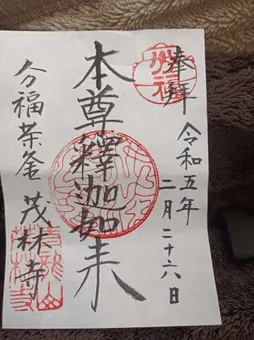 奉拜
令和五年
二月二十六日
本尊釋迦如来
分福茶釜 茂林寺